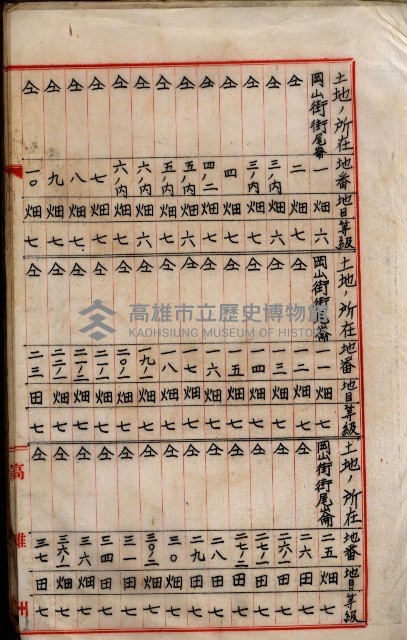 土地ノ所在 地番 地目 等級
岡山街街尾崙 一 畑 六
仝 二 畑 七
仝 三ノ内 畑 七
仝 三ノ内 畑 六
仝 四 畑 七
仝 四ノ二 畑 七
仝 五ノ内 畑 六
仝 五ノ内 畑 七
仝 六ノ内 畑 六
仝 六ノ内 畑 七
仝 七 畑 七
仝 八 畑 七
仝 九 畑 七
仝 一〇 畑 七
土地ノ所在 地番 地目 等級
岡山街街尾崙 一一 畑 七
仝 一二 畑 七
仝 一三 畑 七
仝 一四 畑 七
仝 一五 畑 七
仝 一六 畑 七
仝 一七 畑 七
仝 一八 畑 七
仝 一九ノ一 畑 七
仝 二〇ノ一 畑 七
仝 二一ノ一 畑 七
仝 畑 七
仝 畑 七
仝 二三 田 七
土地ノ所在 地番 地目 等級
岡山街街尾崙 二五 畑 七
仝 二六 田 七
仝 二六ノ一 田 七
仝 二七ノ一 田 七
仝 二七ノ二 田 七
仝 二八 田 七
仝 二九 田 七
仝 三〇 畑 七
仝 三〇ノ二 畑 七
仝 三一 田 七
仝 三四 田 七
仝 三六 畑 七
仝 三六ノ一 畑 七
仝 三七 田 七
高雄州
高雄市立歷史博物館
KAOHSIUNG MUSEUM OF HISTORY